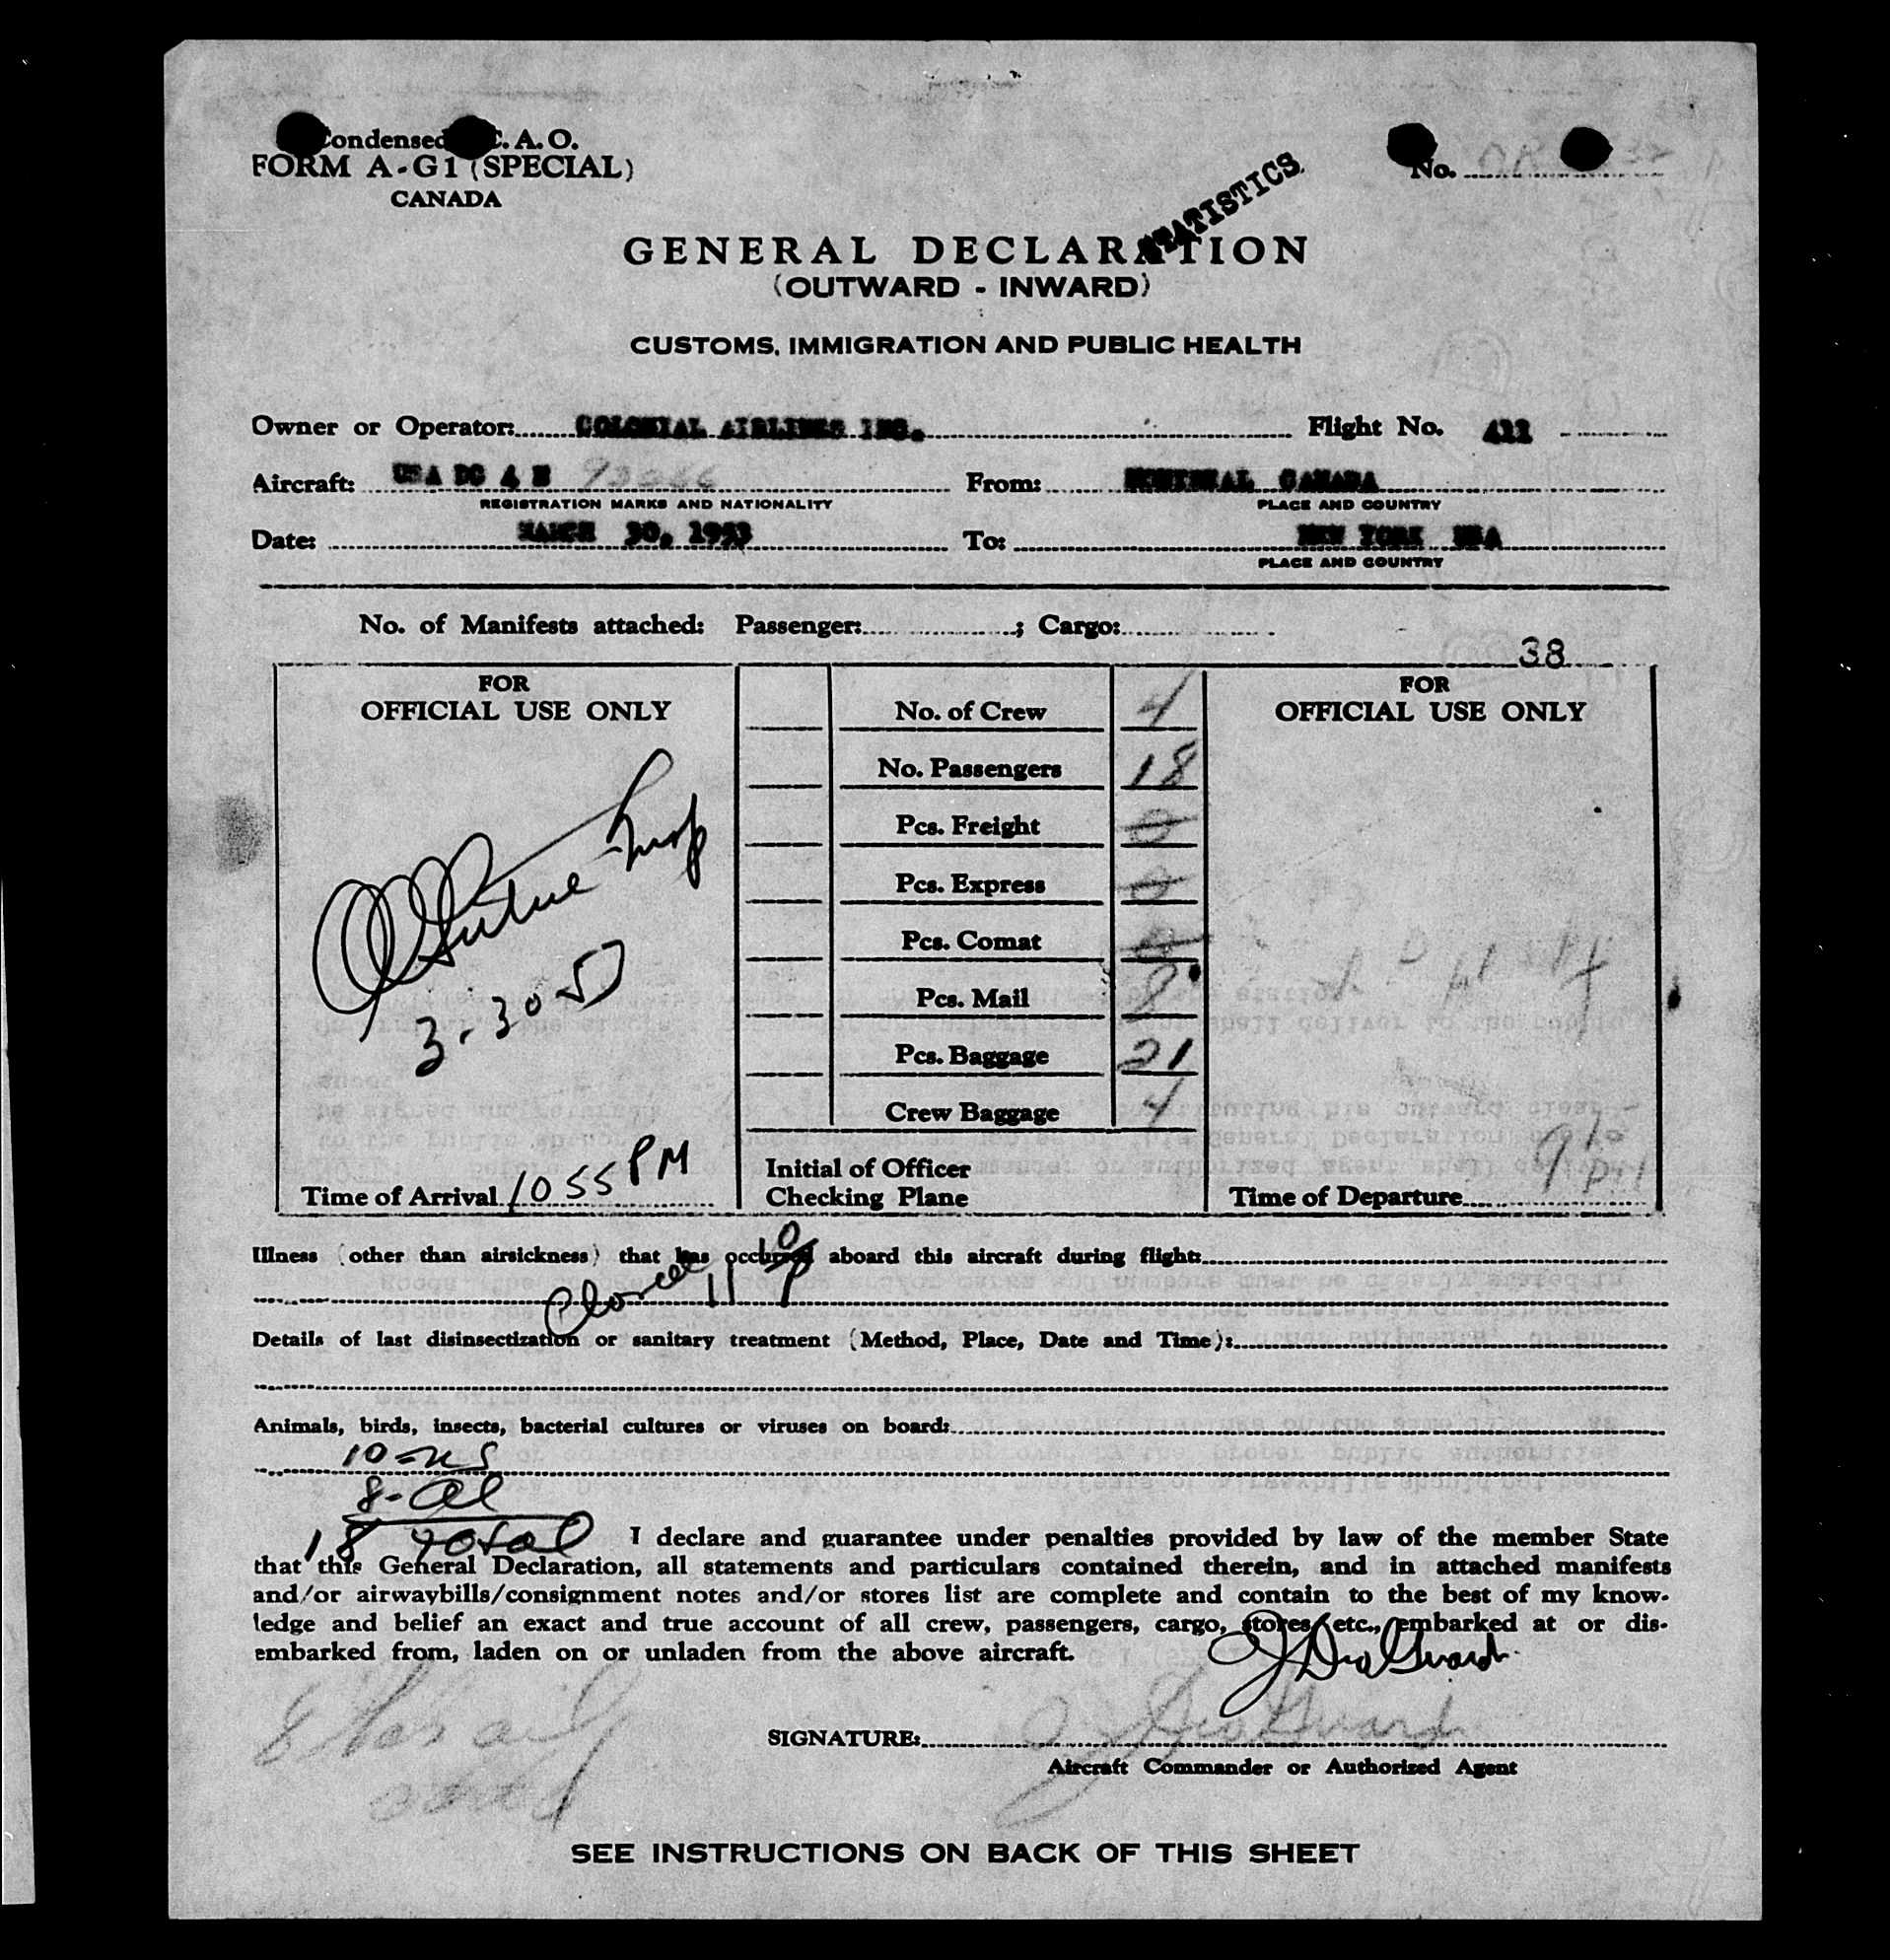 Condensed I.C.A.O.
FORM A-G1 (SPECIAL)
CANADA
No.
STATISTICS
GENERAL DECLARATION
(OUTWARD - INWARD)
CUSTOMS, IMMIGRATION AND PUBLIC HEALTH
Owner or Operator: COLONIAL AIRLINES INC. Flight No.
Aircraft: USA DC 4 N From: MONTREAL CANADA
REGISTRATION MARKS AND NATIONALITY PLACE AND COUNTRY
Date: MARCH 30, 1953 To: NEW YORK USA
PLACE AND COUNTRY
No. of Manifests attached: Passenger: ; Cargo:
38
FOR
OFFICIAL USE ONLY
3-30-53
Time of Arrival 10 55 PM
No. of Crew 4
No. Passengers 18
Pcs. Freight 0
Pcs. Express 0
Pcs. Comat 0
Pcs. Mail 8
Pcs. Baggage 21
Crew Baggage 4
Initial of Officer
Checking Plane
FOR
OFFICIAL USE ONLY
Time of Departure
Illness (other than airsickness) that has occurred aboard this aircraft during flight:
Details of last disinsectization or sanitary treatment (Method, Place, Date and Time):
Animals, birds, insects, bacterial cultures or viruses on board:
10-US
8-al
18 total
I declare and guarantee under penalties provided by law of the member State
that this General Declaration, all statements and particulars contained therein, and in attached manifests
and/or airwaybills/consignment notes and/or stores list are complete and contain to the best of my know-
ledge and belief an exact and true account of all crew, passengers, cargo, stores, etc., embarked at or dis-
embarked from, laden on or unladen from the above aircraft.
SIGNATURE:
Aircraft Commander or Authorized Agent
SEE INSTRUCTIONS ON BACK OF THIS SHEET